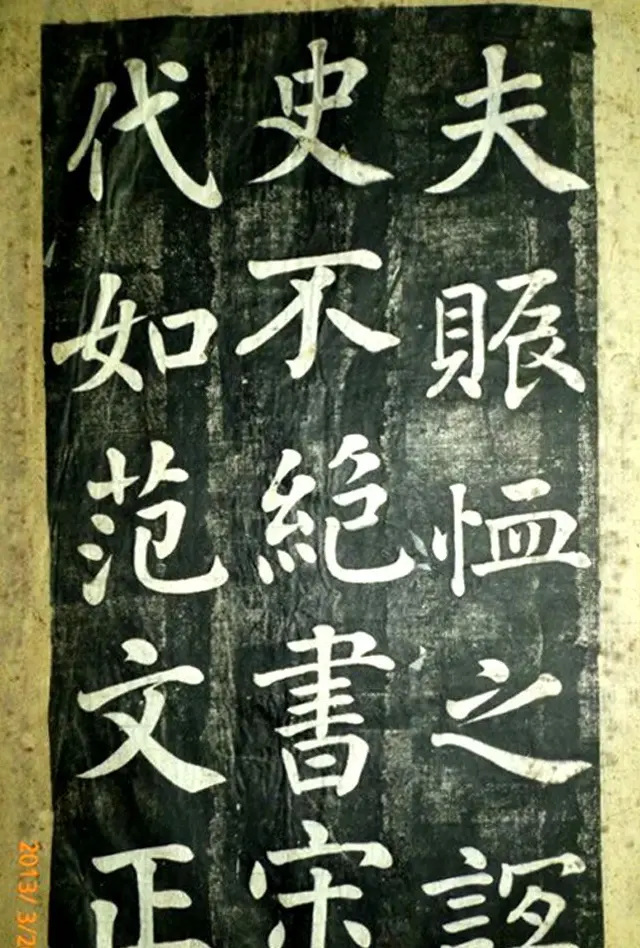 夫賑恤之
史不絕書宋
代如范文正
2013/ 3/2